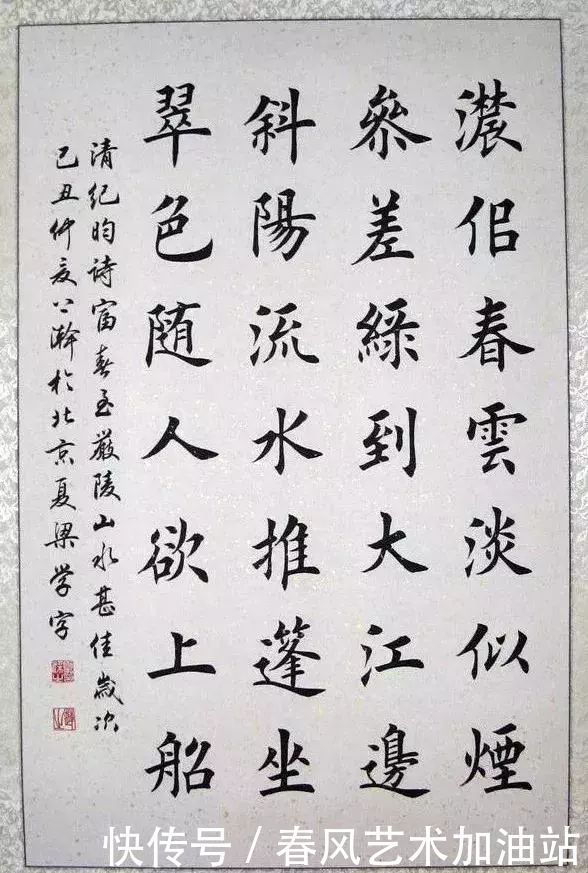 濃侣春雲淡似煙
叅差綠到大江邊
斜陽流水推蓬坐
翠色随人欲上船
清纪昀诗富春至嚴陵山水甚佳歲次
己丑仲夏於北京夏梁学字
快传号 / 春风艺术加油站